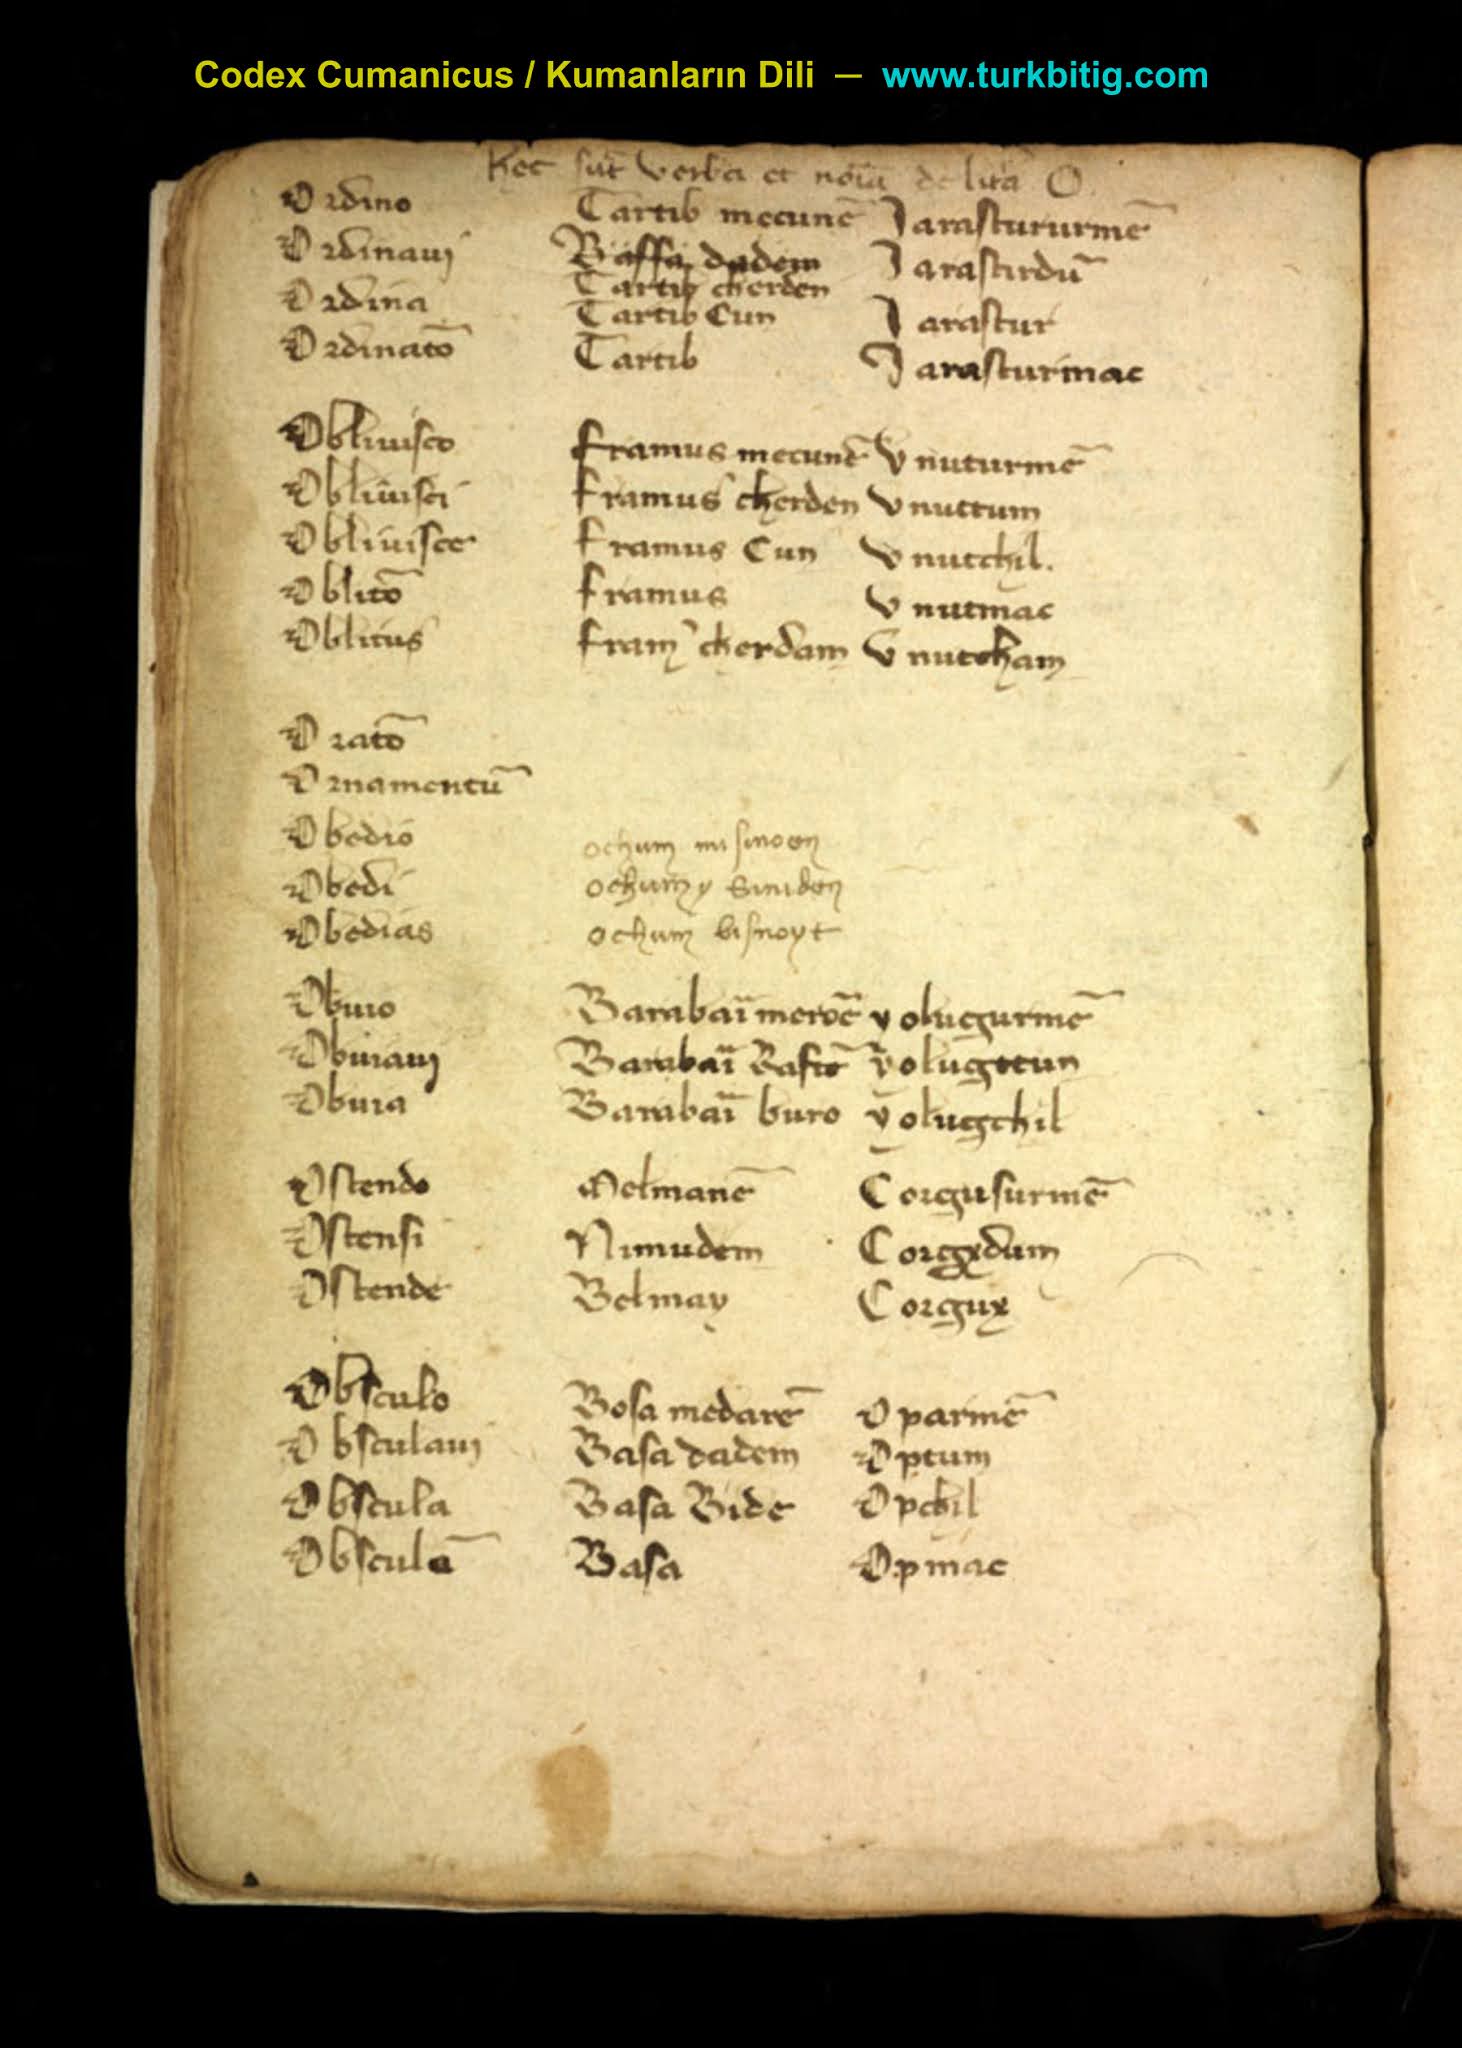 Codex Cumanicus / Kumanların Dili — www.turkbitig.com
hec sūt verba et noīa de lītā O
Ordino Tartib mecunē Jarastururmē
Ordinaui Baffa dadem Jarastirdū
Tartib cherden
Ordina Tartib Cun Jarastur
Ordinatō Tartib Jarasturmac
Obliuisco framus mecunē vnuturmē
Obliuisci framus cherden vnuttum
Obliuisce framus Cun vnutchil.
Oblitō framus vnutmac
Oblitus fram⁹ cherdam vnutcham
Oratō
Ornamentū
Obedio ochum
Obedi ochum
Obedias ochum
Obuio Barabaī yolucgurmē
Obuiaui Barabaī yolugttun
Obuia Barabaī buro yolugchil
Ostendo Melmanē Corgusurmē
Ostensi Nimudem Corgxdum
Ostende Belmay Corgux
Obsculo Bosa medarē Oparmē
Obsculaui Basa dadem Optum
Obscula Basa Bide Opchil
Obsculā Basa Opmac